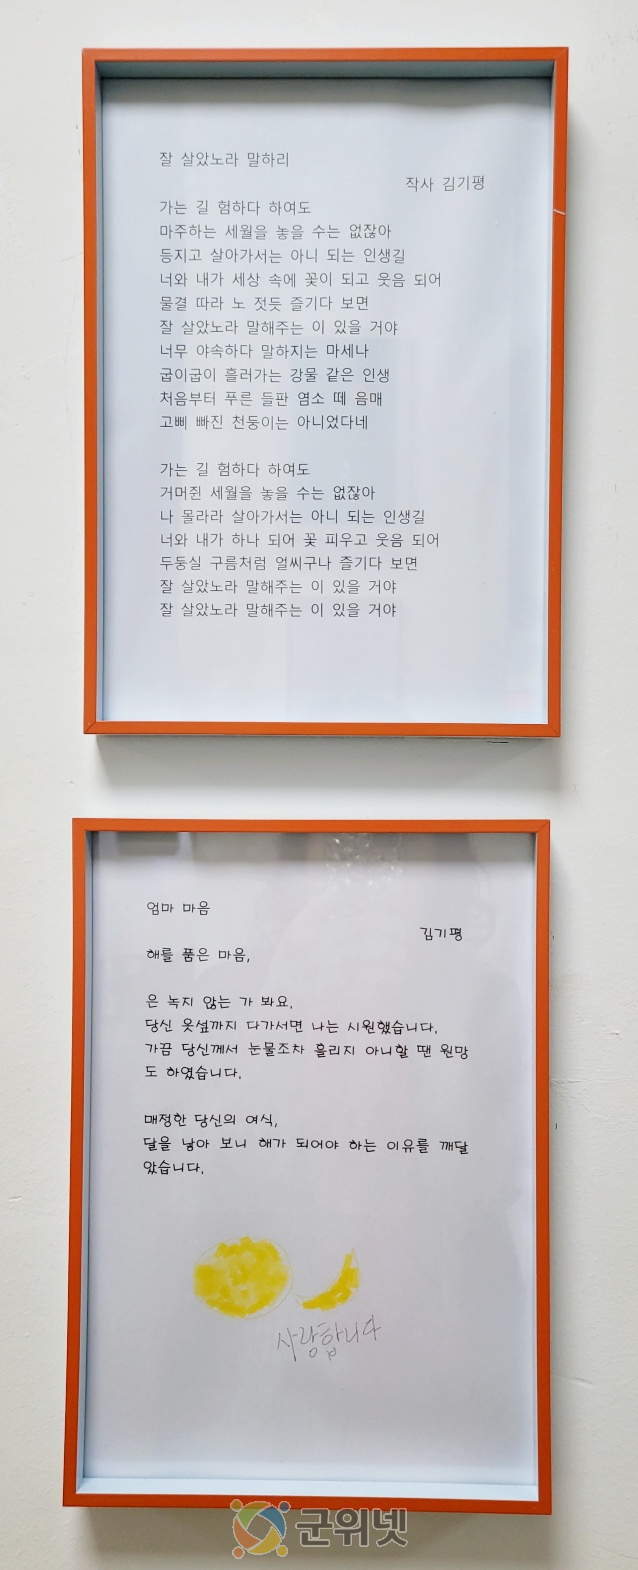 잘 살았노라 말하리
작사 김기평
가는 길 험하다 하여도
마주하는 세월을 놓을 수는 없잖아
등지고 살아가서는 아니 되는 인생길
너와 내가 세상 속에 꽃이 되고 웃음 되어
물결 따라 노 젓듯 즐기다 보면
잘 살았노라 말해주는 이 있을 거야
너무 야속하다 말하지는 마세나
굽이굽이 흘러가는 강물 같은 인생
처음부터 푸른 들판 염소 떼 음매
고삐 빠진 천둥이는 아니었다네
가는 길 험하다 하여도
거머쥔 세월을 놓을 수는 없잖아
나 몰라라 살아가서는 아니 되는 인생길
너와 내가 하나 되어 꽃 피우고 웃음 되어
두둥실 구름처럼 얼씨구나 즐기다 보면
잘 살았노라 말해주는 이 있을 거야
잘 살았노라 말해주는 이 있을 거야
엄마 마음
김기평
해를 품은 마음,
은 녹지 않는 가 봐요.
당신 옷섶까지 다가서면 나는 시원했습니다.
가끔 당신께서 눈물조차 흘리지 아니할 땐 원망
도 하였습니다.
매정한 당신의 여식,
달을 낳아 보니 해가 되어야 하는 이유를 깨달
았습니다.
사랑합니다
군위넷